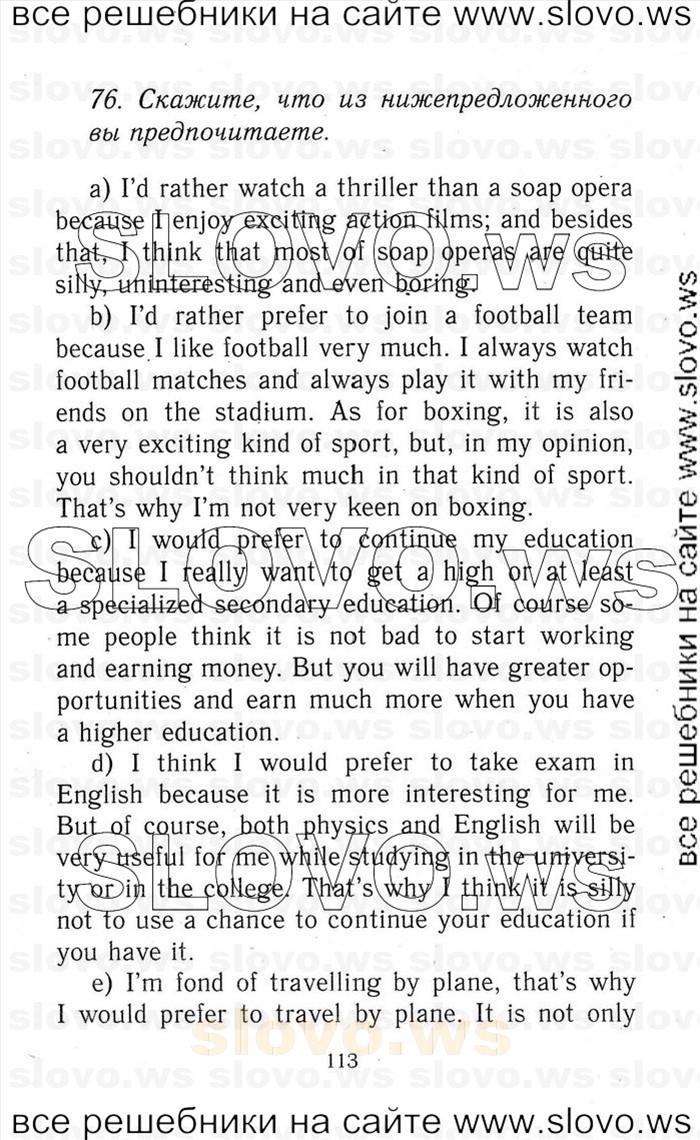 все решебники на сайте www.slovo.ws
76. Скажите, что из нижепредложенного
вы предпочитаете.
a) I'd rather watch a thriller than a soap opera
because I enjoy exciting action films; and besides
that, I think that most of soap operas are quite
silly, uninteresting and even boring.
b) I'd rather prefer to join a football team
because I like football very much. I always watch
football matches and always play it with my fri-
ends on the stadium. As for boxing, it is also
a very exciting kind of sport, but, in my opinion,
you shouldn't think much in that kind of sport.
That's why I'm not very keen on boxing.
c) I would prefer to continue my education
because I really want to get a high or at least
a specialized secondary education. Of course so-
me people think it is not bad to start working
and earning money. But you will have greater op-
portunities and earn much more when you have
a higher education.
d) I think I would prefer to take exam in
English because it is more interesting for me.
But of course, both physics and English will be
very useful for me while studying in the universi-
ty or in the college. That's why I think it is silly
not to use a chance to continue your education if
you have it.
e) I'm fond of travelling by plane, that's why
I would prefer to travel by plane. It is not only
slovo.ws
113
все решебники на сайте www.slovo.ws
все решебники на сайте www.slovo.ws
SLOVO.ws
SLOVO.ws
SLOVO.ws